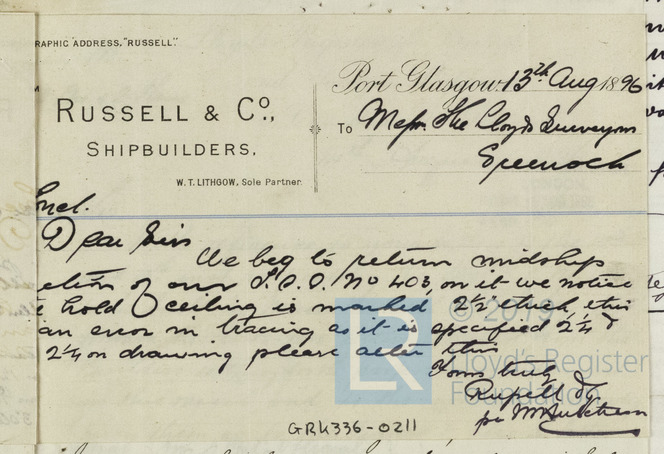 RAPHIC ADDRESS, "RUSSELL".
Port Glasgow 13th Aug 1896
RUSSELL & Co.,
SHIPBUILDERS,
W. T. LITHGOW, Sole Partner.
To Messrs. The Lloyds Surveyors
Greenock
Encl.
Dear Sirs
We beg to return midship
ction of our S.S. No 403, on it we notice
e hold ceiling is marked 2½ thick, this
an error in tracing as it is specified 2¼ &
2¼ on drawing please alter this
Yours truly
Russell & Co
pr
© 2019
Lloyd's Register
Foundation
LR
GRK336-0211